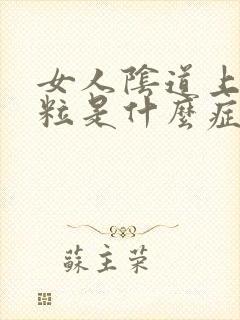 女人陰道上
粒是什麼症
蘇主荣